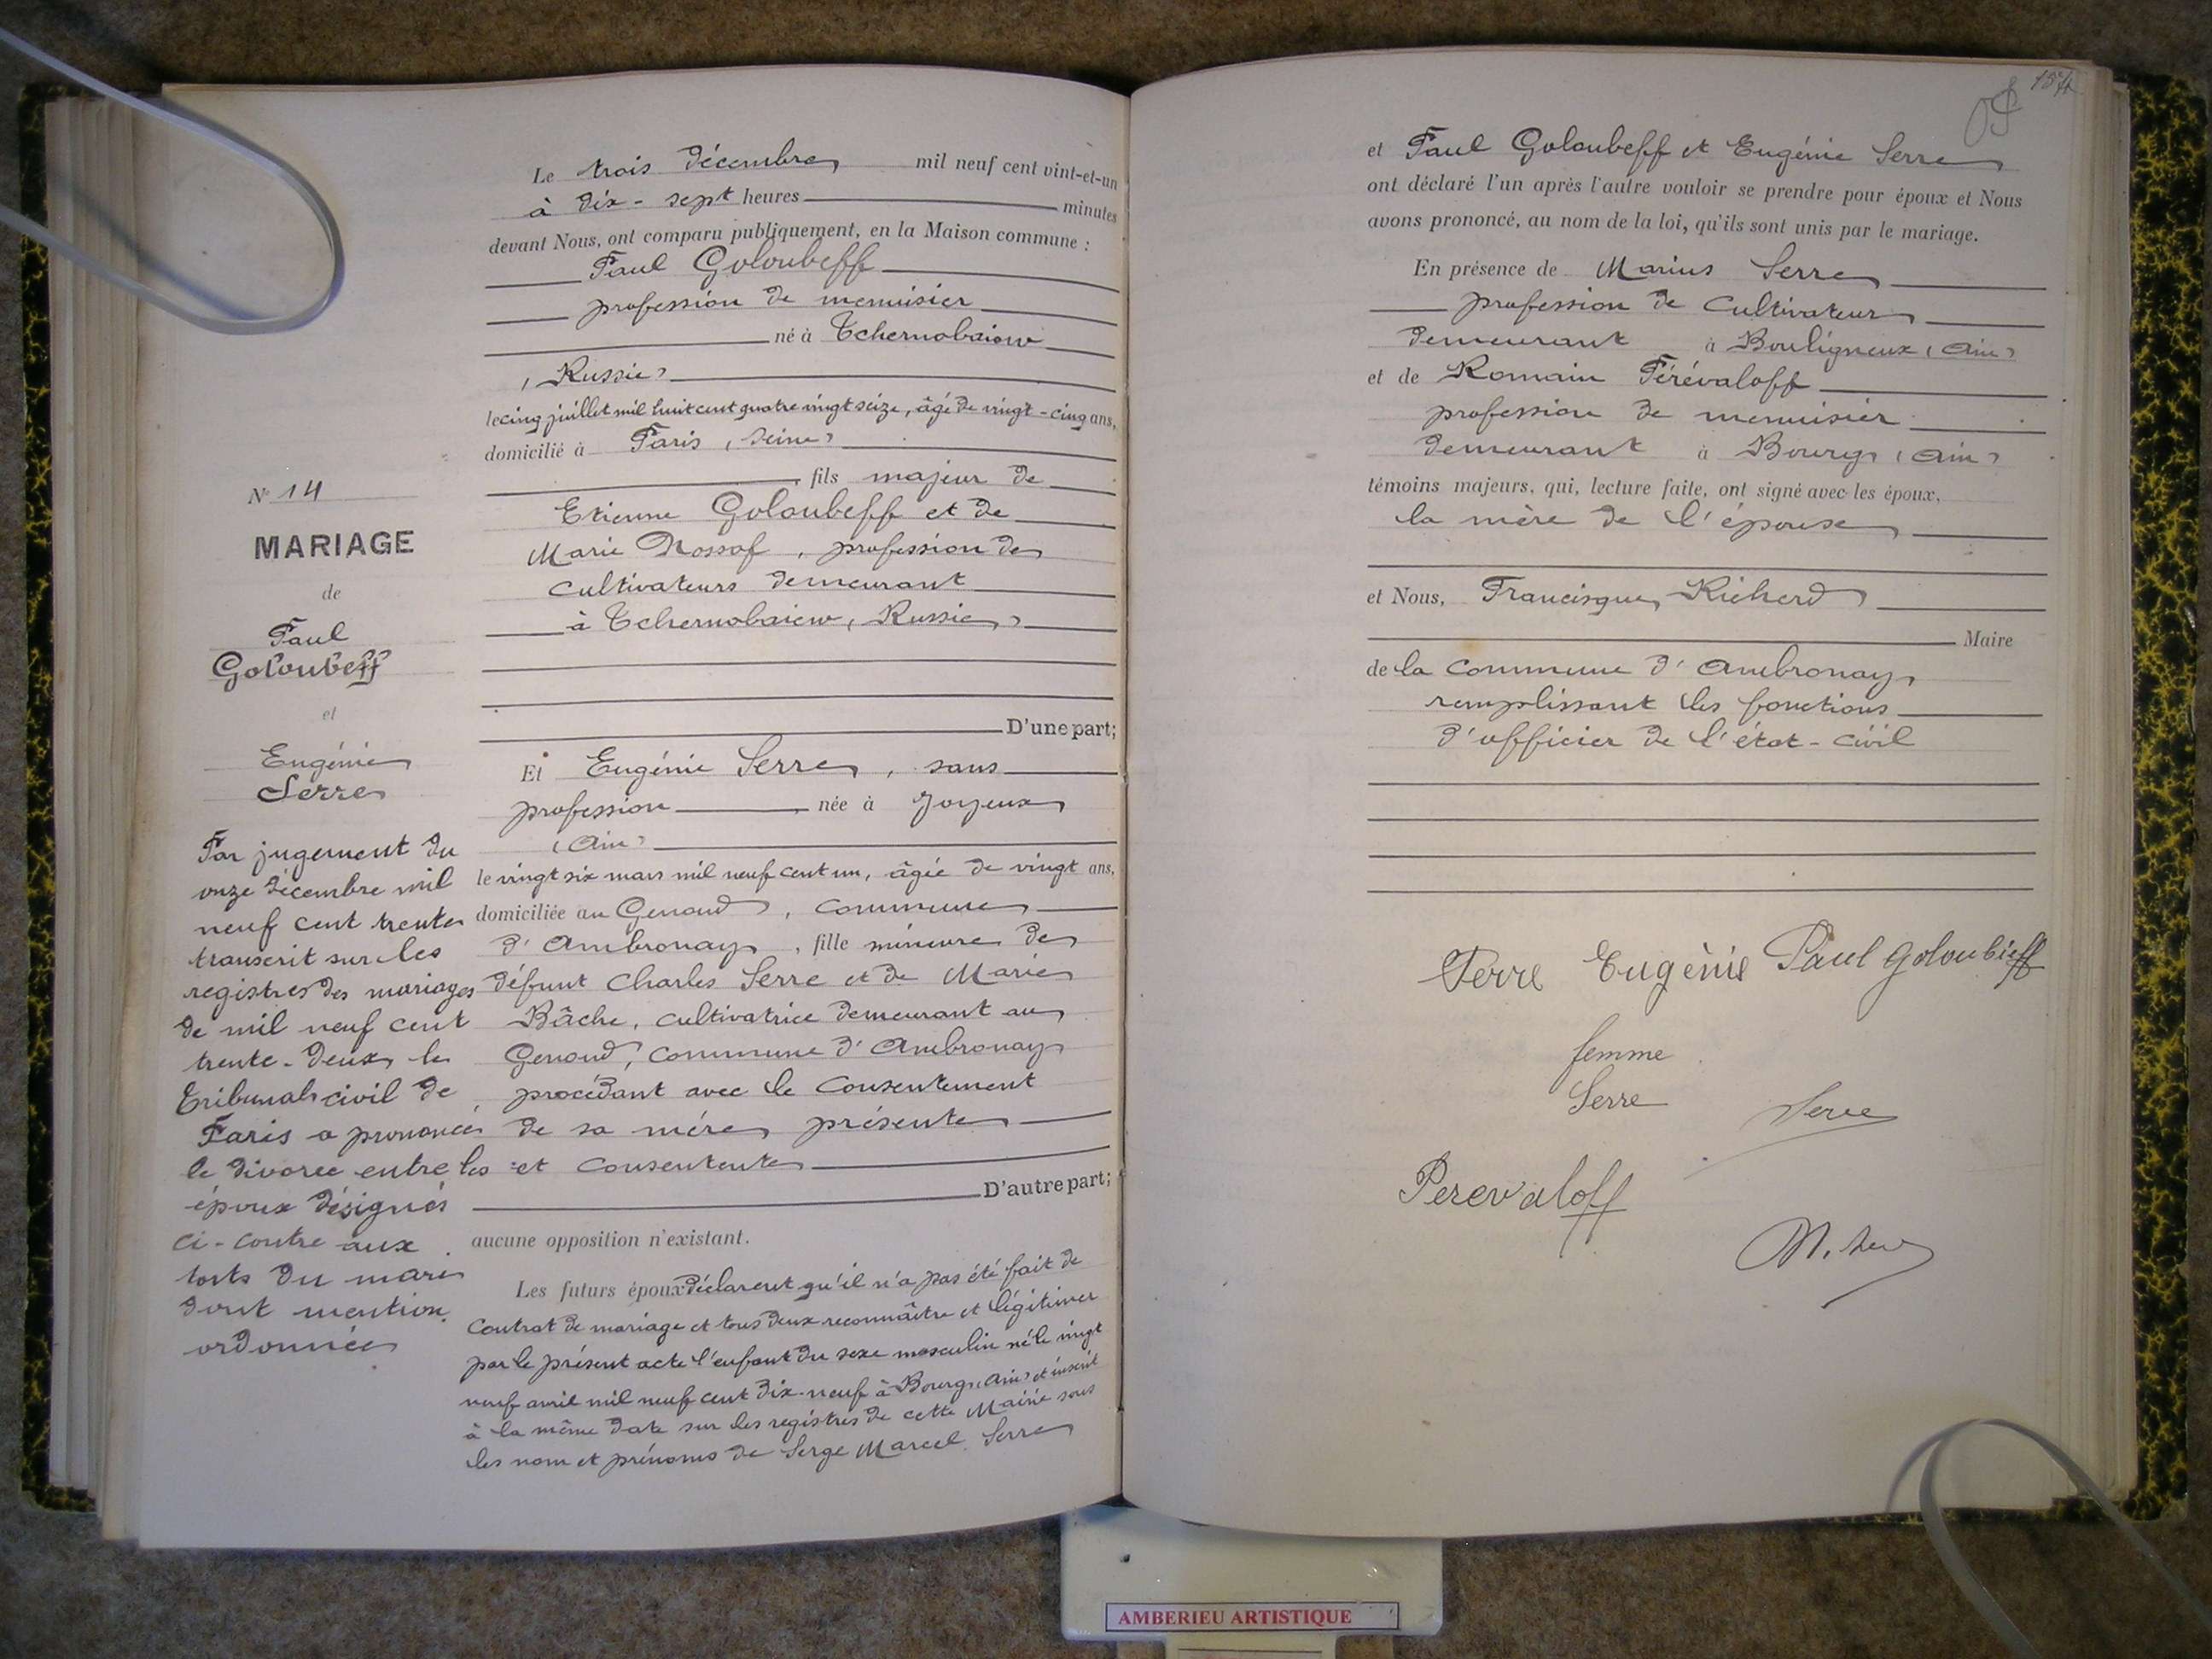 Le trois décembre mil neuf cent vint-et-un
à dix-sept heures minutes
devant Nous, ont comparu publiquement, en la Maison commune :
Paul Goloubeff
profession de menuisier
né à Tchernobaiew
(Russie)
le cinq juillet mil huit cent quatre vingt seize, âgé de vingt-cinq ans,
domicilié à Paris (Seine)
, fils majeur de
Etienne Goloubeff et de
Marie Nossof, profession de
cultivateurs demeurant
à Tchernobaiew (Russie)
D'une part;
Et Eugénie Serre, sans
profession, née à Joyeux
(Ain)
le vingt six mars mil neuf cent un, âgée de vingt ans,
domiciliée au Genoud, commune
d'Ambronay, fille mineure de
défunt Charles Serre et de Marie
Bâche, cultivatrice demeurant au
Genoud, commune d'Ambronay
procédant avec le consentement
de sa mère présente
et consentente
D'autre part;
aucune opposition n'existant.
Les futurs époux déclarent qu'il n'a pas été fait de
contrat de mariage et tous deux reconnaître et légitimer
par le présent acte l'enfant du sexe masculin né le vingt
neuf avril mil neuf cent dix-neuf à Bourg (Ain) et inscrit
à la même date sur les registres de cette Mairie sous
les nom et prénoms de Serge Marcel Serre
N° 14
MARIAGE
de
Paul
Goloubeff
et
Eugénie
Serre
Par jugement du
onze décembre mil
neuf cent trente
transcrit sur les
registres des mariages
de mil neuf cent
trente-deux, le
Tribunal civil de
Paris a prononcé
le divorce entre les
époux désignés
ci-contre aux
torts du mari
dont mention
ordonnée
154
et Paul Goloubeff et Eugénie Serre
ont déclaré l'un après l'autre vouloir se prendre pour époux et Nous
avons prononcé, au nom de la loi, qu'ils sont unis par le mariage.
En présence de Marius Serre
profession de cultivateur
demeurant à Bouligneux (Ain)
et de Romain Pérévaloff
profession de menuisier
demeurant à Bourg (Ain)
témoins majeurs, qui, lecture faite, ont signé avec les époux,
la mère de l'épouse
et Nous, Francisque Richerd
Maire
de la commune d'Ambronay
remplissant les fonctions
d'officier de l'état-civil
Serre Eugènie Paul Goloubieff
femme
Serre Serre
Perevaloff
AMBERIEU ARTISTIQUE